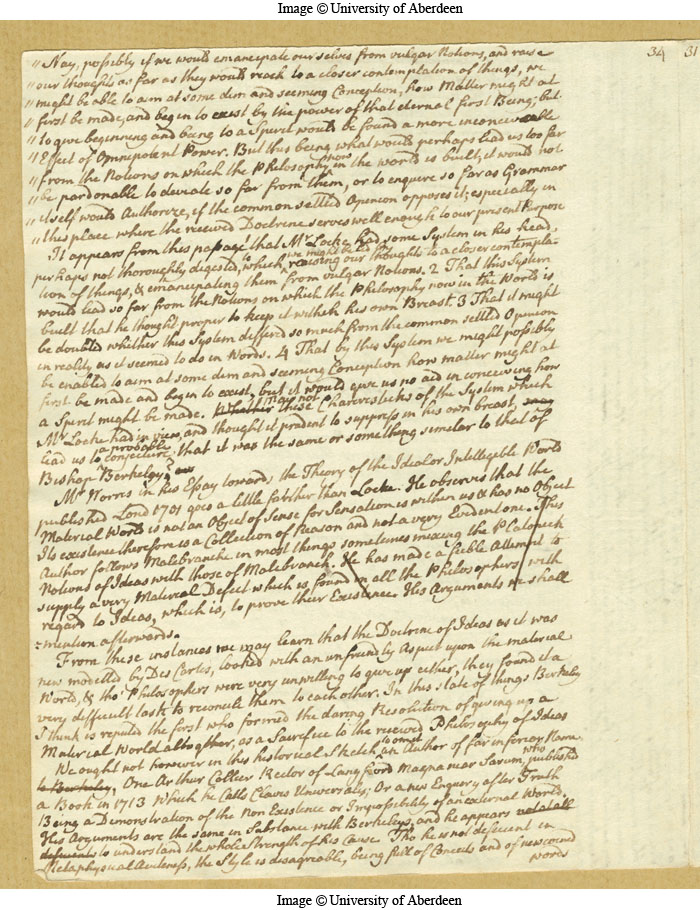 Image © University of Aberdeen
34 31
" Nay, possibly if we would emancipate our selves from vulgar Notions, and raise
" our thoughts as far as they would reach to a closer contemplation of things, we
" might be able to aim at some dim and seeming Conception, how Matter might at
" first be made, and begin to exist by the power of that eternal first Being; but
" to give beginning and being to a Spirit would be found a more inconceivable
" Effect of Omnipotent Power. But this being what would perhaps lead us too far
" from the Notions on which the Philosophy now in the world is built, it would not
" be pardonable to deviate so far from them, or to enquire so far as Grammar
" itself would Authorize, if the common settled Opinion opposes it; especially in
" this place where the received Doctrine serves well enough to our present Purpose
It appears from this passage that Mr Locke had some System in his head,
perhaps not thoroughly digested, to which we might be led by raising our thoughts to a closer contempla-
tion of things, & emancipating them from vulgar Notions. 2 That this System
would lead so far from the Notions on which the Philosophy now in the World is
built that he thought proper to keep it within his own Breast. 3 That it might
be doubted whether this System differd so much from the common settled Opinion
in reality as it seemed to do in Words. 4 That by this System we might possibly
be enabled to aim at some dim and seeming Conception how matter might at
first be made and begin to exist, but it would give us no aid in conceiving how
a Spirit might be made. Whether may not these Characteristicks of the System which
Mr Locke had in view, and thought it prudent to suppress in his own breast,
lead us to a probable conjecture, that it was the same or something similar to that of
Bishop Berkeley?
Mr Norris in his Essay towards the Theory of the Ideal or Intelligible World
published Lond 1701 goes a little farther than Locke. He observes that the
Material World is not an Object of Sense for Sensation is within us & has no Object
Its existence therefore is a Collection of Reason and not a very Evident one. This
Author follows Malebranche in most things sometimes mixing the Platonick
Notions of Ideas with those of Malebranch. He has made a feeble Attempt to
supply a very Material Defect which is found in all the Philosophers with
regard to Ideas, which is, to prove their Existence. His Arguments we shall
mention afterwards.
From these instances we may learn that the Doctrine of Ideas as it was
new modelled by Des Cartes, looked with an unfriendly Aspect upon the material
World, & tho' Philosophers were very unwilling to give up either, they found it a
very difficult task to reconcile them to each other. In this state of things Berkeley
I think is reputed the first who formed the daring Resolution of giving up a
Material World altogether, as a Sacrifice to the received Philosophy of Ideas
We ought not however in this historical Sketch to omit an Author of far inferior Name
to Berkeley, One Arthur Collier Rector of Langford Magna near Sarum, who published
a Book in 1713 Which he Calls Clavis Universalis; Or a new Enquiry after Truth
Being a Demonstration of the Non Existence or Impossibility of an external World.
His Arguments are the same in Substance with Berkeleys, and he appears not at all
deficient to understand the whole Strength of his Cause. Tho he is not deficient in
Metaphysical Acuteness, the Style is disagreable, being full of Conceits and of new coined
words
Image © University of Aberdeen